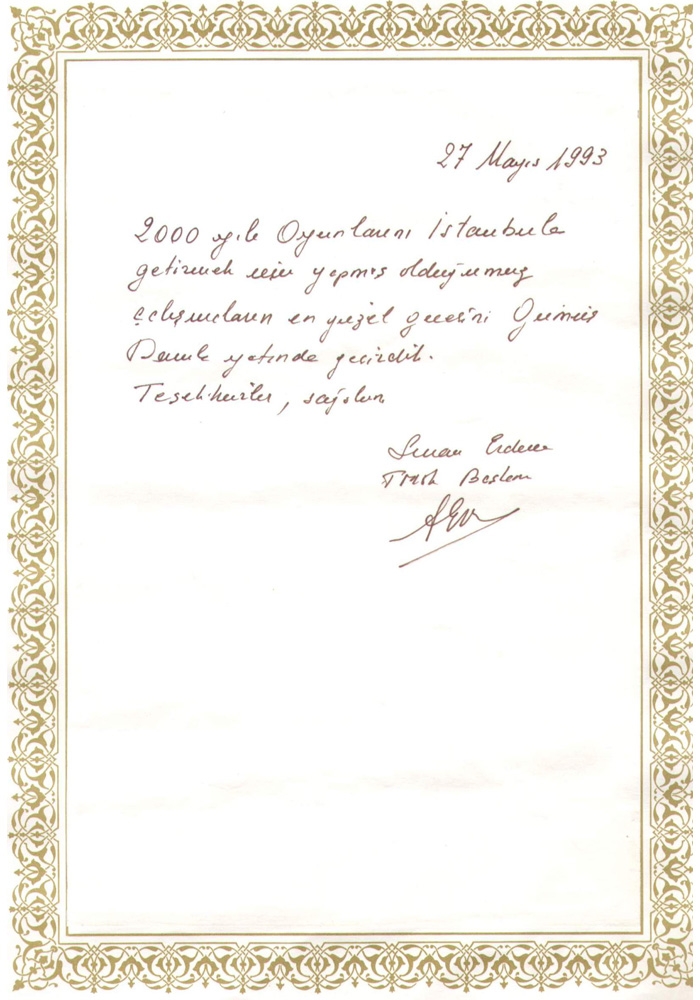 27 Mayıs 1993
2000 yılı Oyunlarını İstanbula
getirmek için yapmış olduğumuz
çalışmaların en güzel gecesini Gümüş
Damla yatında geçirdik.
Teşekkürler, sağolun
Sinan Erdem
TMOK Başkanı